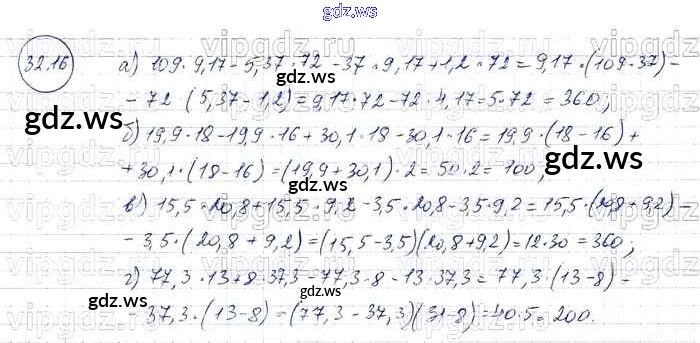 gdz.ws
32.16
а) 109 · 9,17 - 5,37 · 72 - 37 · 9,17 + 1,2 · 72 = 9,17 · (109 · 37) -
- 72 (5,37 - 1,2) = 9,17 · 72 - 72 · 4,17 = 5 · 72 = 360;
б) 19,9 · 18 - 19,9 · 16 + 30,1 · 18 - 30,1 · 16 = 19,9 · (18 - 16) +
+ 30,1 · (18 - 16) = (19,9 + 30,1) · 2 = 50 · 2 = 100;
в) 15,5 · 20,8 + 15,5 · 9,2 - 3,5 · 20,8 - 3,5 · 9,2 = 15,5 · (20,8 + 9,2) -
- 3,5 · (20,8 + 9,2) = (15,5 - 3,5)(20,8 + 9,2) = 12 · 30 = 360;
г) 77,3 · 13 + 8 · 37,3 - 77,3 · 8 - 13 · 37,3 = 77,3 · (13 - 8) -
- 37,3 · (13 - 8) = (77,3 - 37,3)(31 - 8) = 40 · 5 = 200.
gdz.ws
gdz.ws
gdz.ws
gdz.ws
gdz.ws
gdz.ws
gdz.ws
gdz.ws